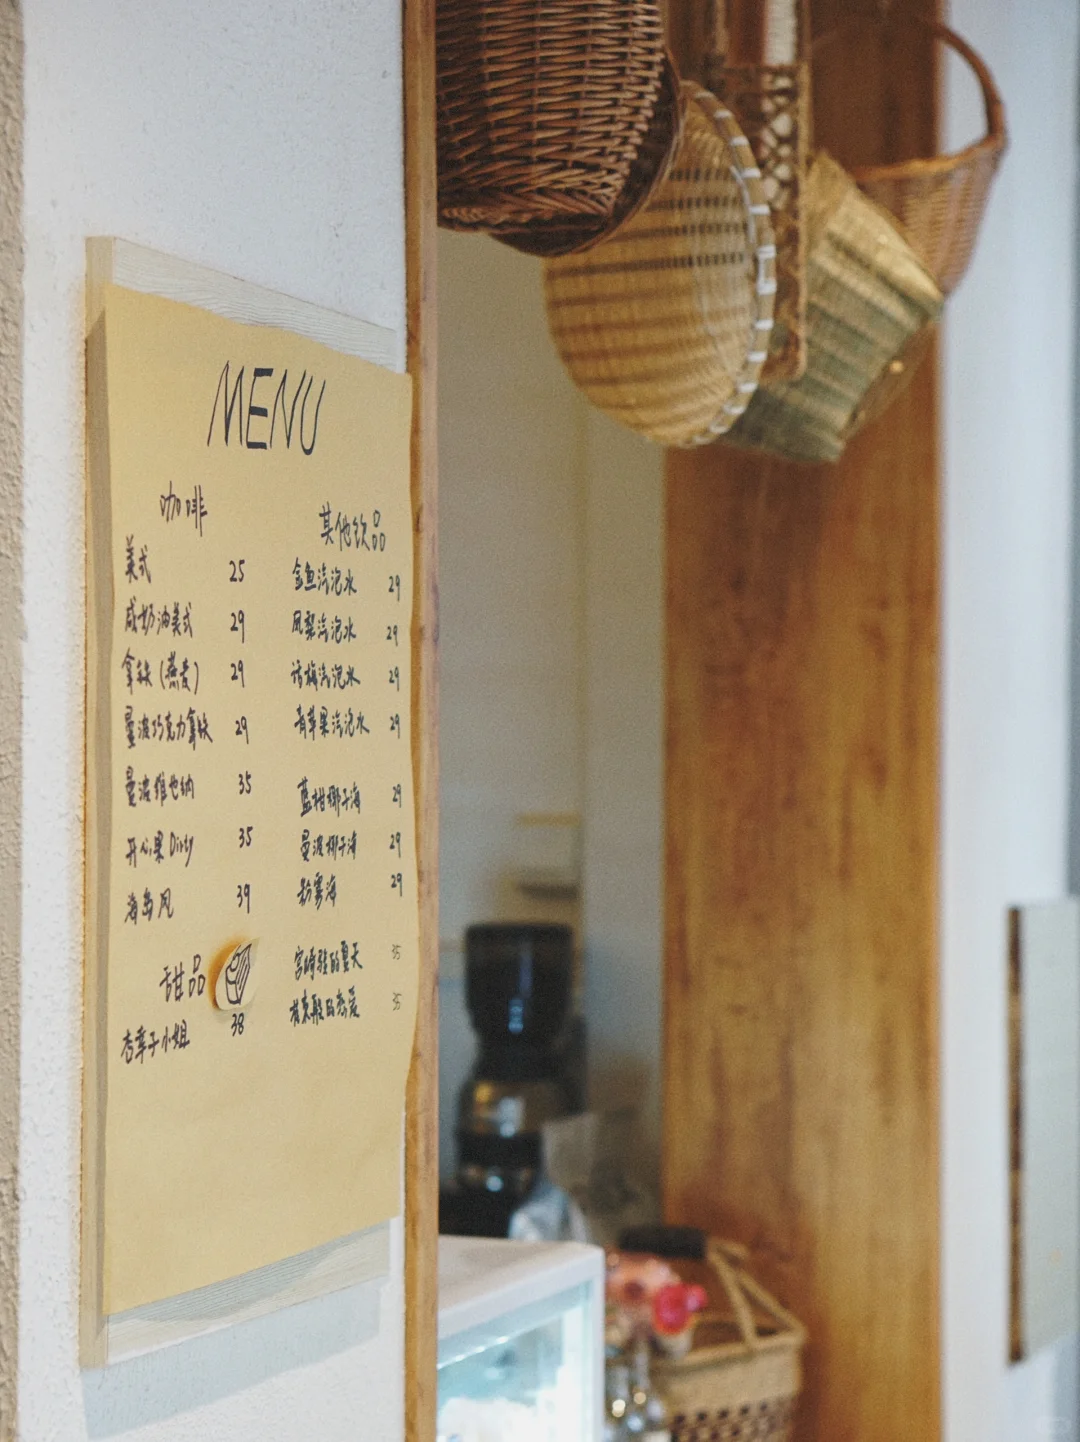 MENU
咖啡
美式 25
咸奶油美式 29
拿铁（燕麦） 29
曼波巧克力拿铁 29
曼波维也纳 35
开心果Dirty 35
海岛风 39
甜品
杏幸子小姐 38
其他饮品
金鱼汽泡水 29
凤梨汽泡水 29
话梅汽泡水 29
青苹果汽泡水 29
蓝柑椰子海 29
曼波椰子海 29
粉雾海 29
宫崎骏的夏天 35
的恋爱 35